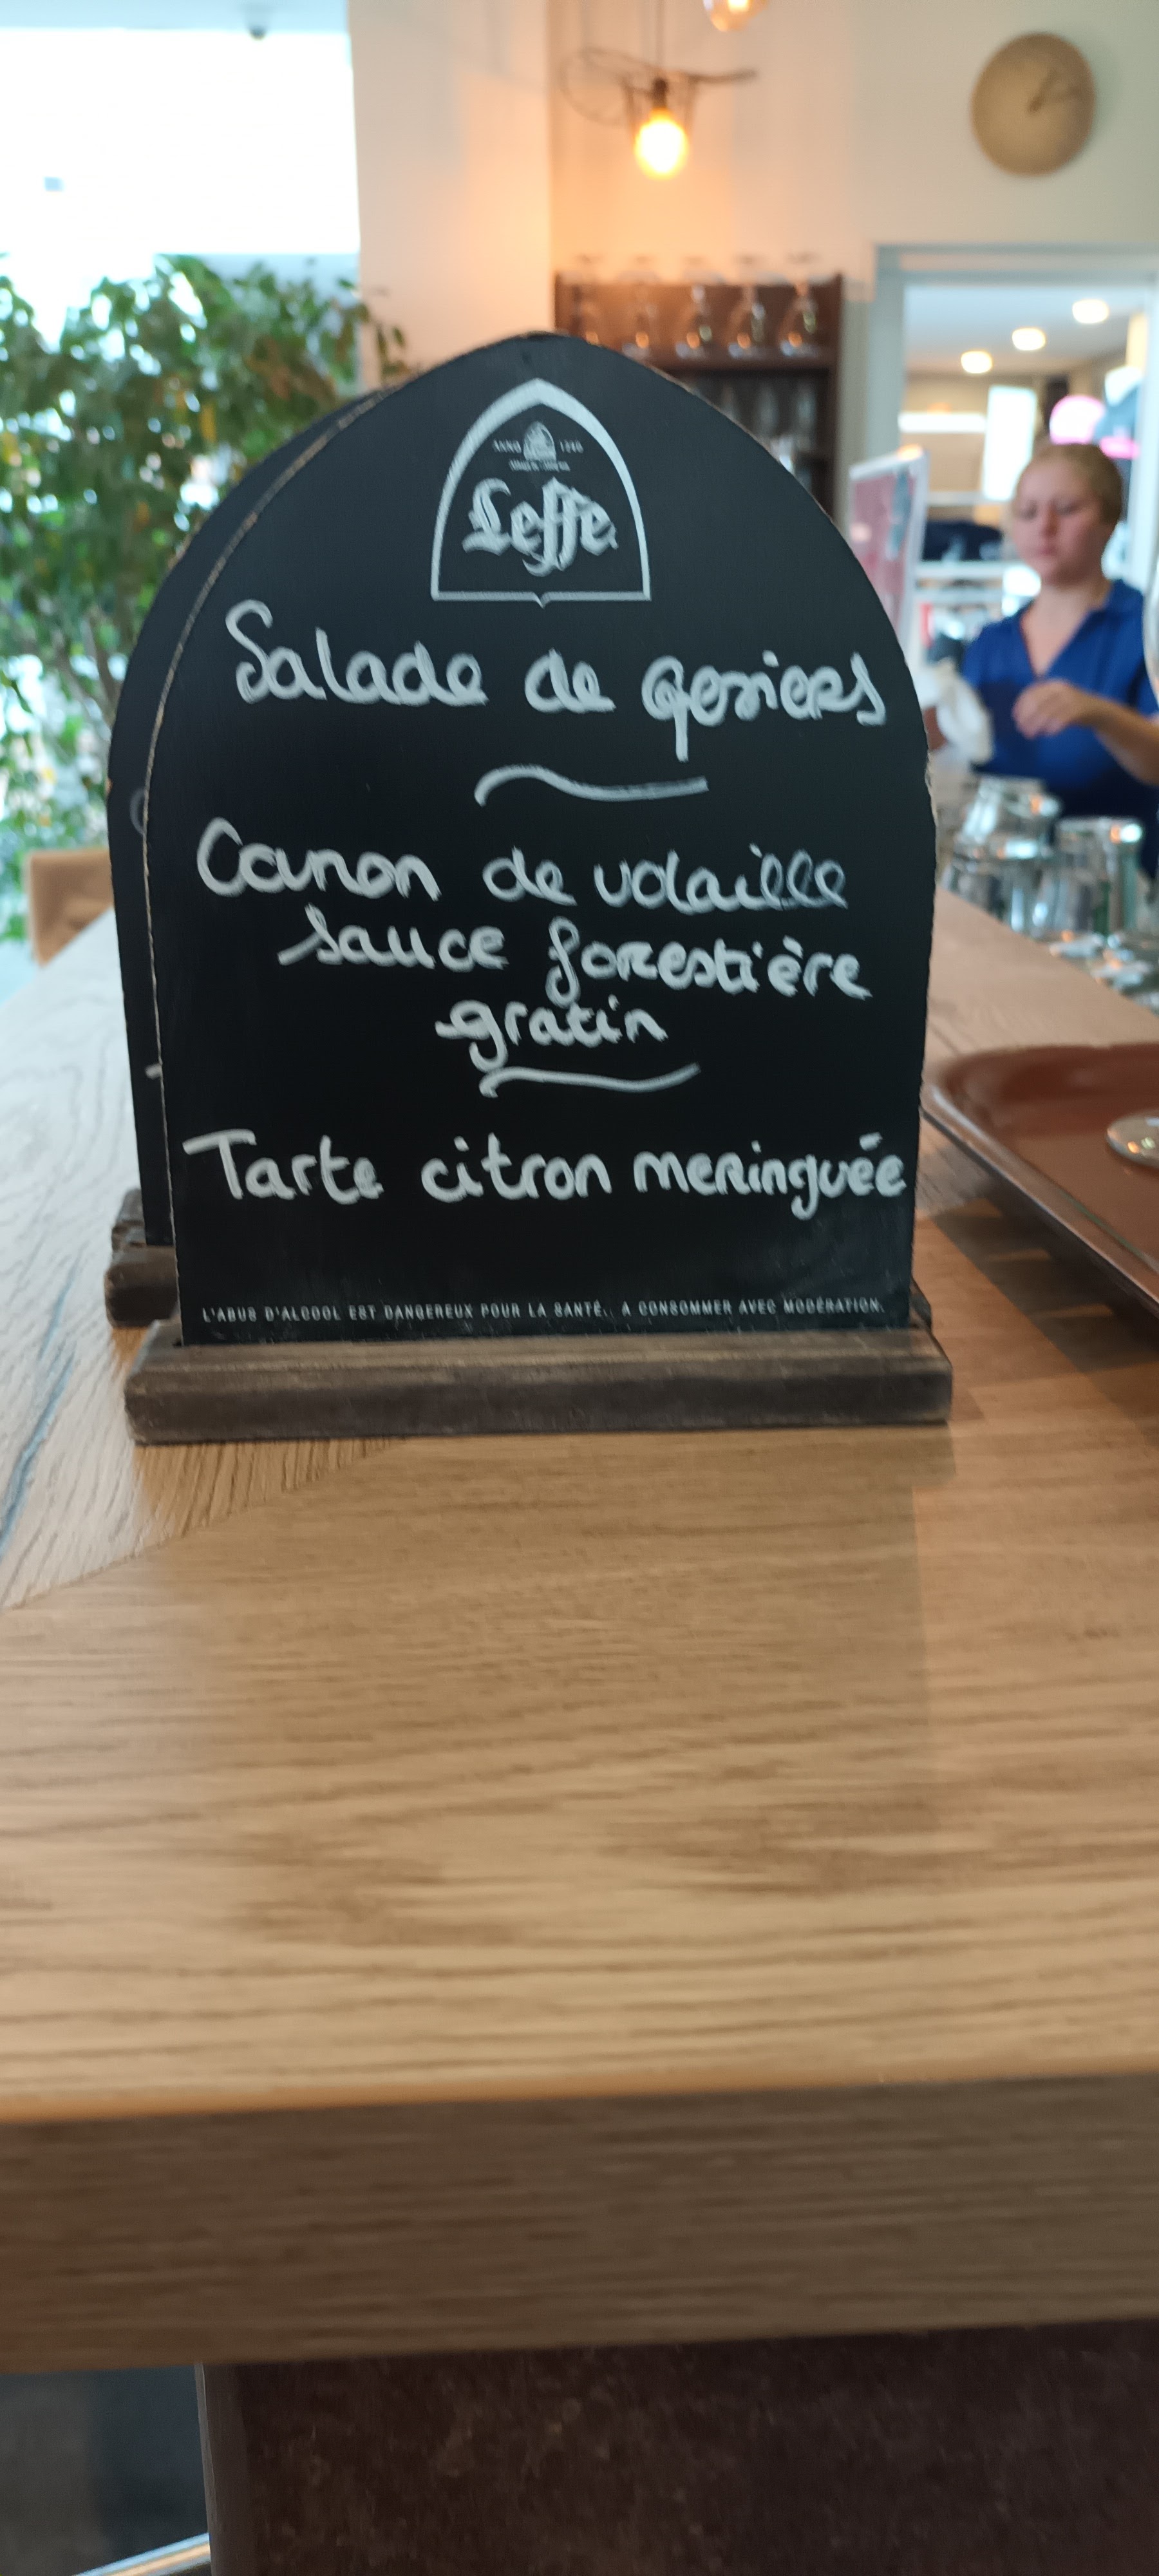 ANNO 1240
Leffe
Salade de gesiers
Canon de volaille
sauce forestière
gratin
Tarte citron meringuée
L'ABUS D'ALCOOL EST DANGEREUX POUR LA SANTÉ. A CONSOMMER AVEC MODÉRATION.